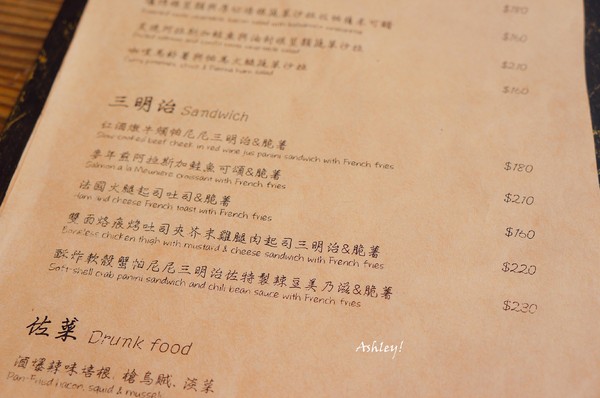 $180
$160
$210
咖哩馬鈴薯與帕馬火腿蔬菜沙拉
$160
三明治 Sandwich
紅酒燉牛頰帕尼尼三明治&脆薯
Slow cooked beef cheek in red wine jus panini sandwich with French fries
$180
麥年煎阿拉斯加鮭魚可頌&脆薯
Salmon a la Meuniere croissant with French fries
$210
法國火腿起司吐司&脆薯
Ham and cheese French toast with French fries
$160
雙面烙痕烤吐司夾芥末雞腿肉起司三明治&脆薯
Boneless chicken thigh with mustard & cheese sandwich with French fries
$220
酥炸軟殼蟹帕尼尼三明治佐特製辣豆美乃滋&脆薯
Soft-shell crab panini sandwich and chili bean sauce with French fries
$230
佐菜 Drunk food
Ashley!
酒爆辣味培根, 槍烏賊, 淡菜
Pan-Fried bacon, squid & mussels